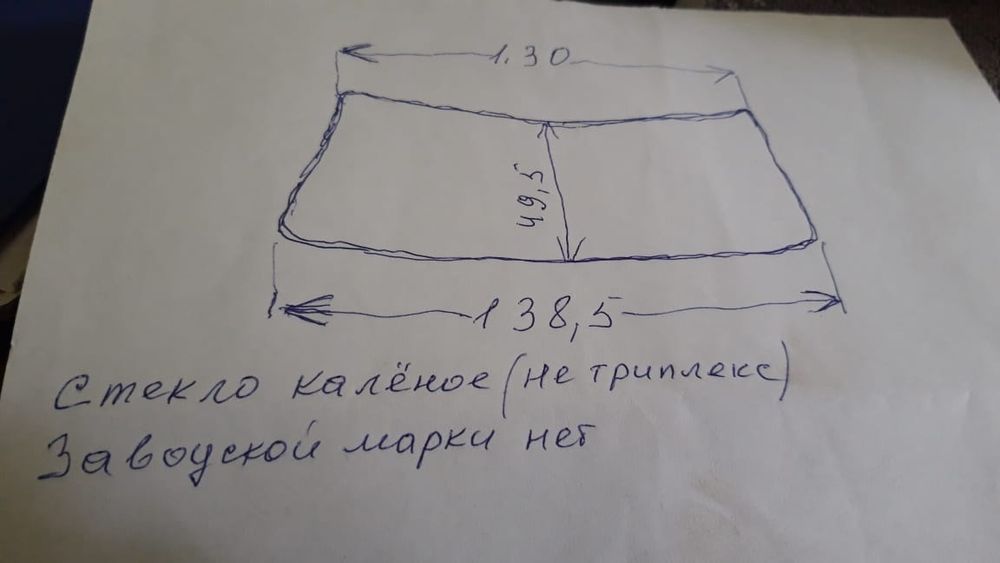 1.30
49,5
138,5
Стекло калёное (не триплекс)
Заводской марки нет